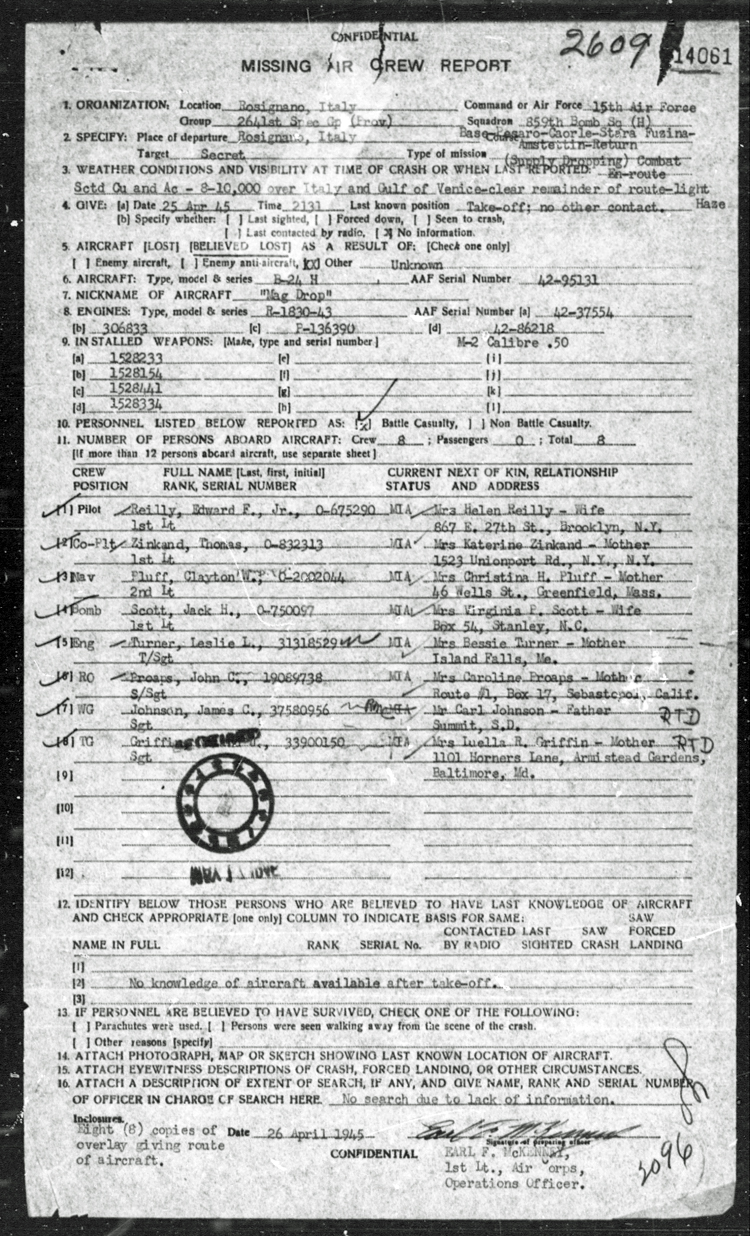 CONFIDENTIAL
2609
14061
MISSING AIR CREW REPORT
1. ORGANIZATION: Location Rosignano, Italy Command or Air Force 15th Air Force
Group 2641st Spec Gp (Prov) Squadron 859th Bomb Sq (H)
2. SPECIFY: Place of departure Rosignano, Italy Course Base-Pesaro-Caorle-Stara Fuzina-
Amstettin-Return
Target Secret Type of mission (Supply Dropping) Combat
3. WEATHER CONDITIONS AND VISIBILITY AT TIME OF CRASH OR WHEN LAST REPORTED: En-route
Sctd Cu and Ac - 8-10,000 over Italy and Gulf of Venice-clear remainder of route-light
Haze
4. GIVE: [a] Date 25 Apr 45 Time 2131 Last known position Take-off; no other contact.
[b] Specify whether: [ ] Last sighted, [ ] Forced down, [ ] Seen to crash,
[ ] Last contacted by radio, [X] No information.
5. AIRCRAFT [LOST] [BELIEVED LOST] AS A RESULT OF: [Check one only]
[ ] Enemy aircraft, [ ] Enemy anti-aircraft, [XX] Other Unknown
6. AIRCRAFT: Type, model & series B-24 H , AAF Serial Number 42-95131
7. NICKNAME OF AIRCRAFT "Mag Drop"
8. ENGINES: Type, model & series R-1830-43 AAF Serial Number [a] 42-37554
[b] 306833 [c] F-136390 [d] 42-86218
9. INSTALLED WEAPONS: [Make, type and serial number] M-2 Calibre .50
[a] 1528233 [e] [i]
[b] 1528154 [f] [j]
[c] 1528441 [g] [k]
[d] 1528334 [h] [l]
10. PERSONNEL LISTED BELOW REPORTED AS: [X] Battle Casualty, [ ] Non Battle Casualty.
11. NUMBER OF PERSONS ABOARD AIRCRAFT: Crew 8 ; Passengers 0 ; Total 8
[If more than 12 persons aboard aircraft, use separate sheet]
CREW FULL NAME [Last, first, initial] CURRENT NEXT OF KIN, RELATIONSHIP
POSITION RANK, SERIAL NUMBER STATUS AND ADDRESS
[1] Pilot Reilly, Edward F., Jr., O-675290 MIA Mrs Helen Reilly - Wife
1st Lt 867 E. 27th St., Brooklyn, N.Y.
[2] Co-Plt Zinkand, Thomas, O-832313 MIA Mrs Katerine Zinkand - Mother
1st Lt 1523 Unionport Rd., N.Y., N.Y.
[3] Nav Fluff, Clayton W., O-2002044 MIA Mrs Christina H. Fluff - Mother
2nd Lt 46 Wells St., Greenfield, Mass.
[4] Bomb Scott, Jack H., O-750097 MIA Mrs Virginia P. Scott - Wife
1st Lt Box 54, Stanley, N.C.
[5] Eng Turner, Leslie L., 31318529 MIA Mrs Bessie Turner - Mother
T/Sgt Island Falls, Me.
[6] RO Proaps, John C., 19089738 MIA Mrs Caroline Proaps - Mother
S/Sgt Route #1, Box 17, Sebastopol, Calif.
[7] WG Johnson, James C., 37580956 MIA Mr Carl Johnson - Father
Sgt Summit, S.D. RTD
[8] TG Griffin, J., 33900150 MIA Mrs Luella R. Griffin - Mother RTD
Sgt 1101 Horners Lane, Armistead Gardens,
[9] Baltimore, Md.
[10]
[11]
[12]
12. IDENTIFY BELOW THOSE PERSONS WHO ARE BELIEVED TO HAVE LAST KNOWLEDGE OF AIRCRAFT
AND CHECK APPROPRIATE [one only] COLUMN TO INDICATE BASIS FOR SAME: SAW
CONTACTED LAST SAW FORCED
NAME IN FULL RANK SERIAL No. BY RADIO SIGHTED CRASH LANDING
[1]
[2] No knowledge of aircraft available after take-off.
[3]
13. IF PERSONNEL ARE BELIEVED TO HAVE SURVIVED, CHECK ONE OF THE FOLLOWING:
[ ] Parachutes were used. [ ] Persons were seen walking away from the scene of the crash.
[ ] Other reasons [specify]
14. ATTACH PHOTOGRAPH, MAP OR SKETCH SHOWING LAST KNOWN LOCATION OF AIRCRAFT.
15. ATTACH EYEWITNESS DESCRIPTIONS OF CRASH, FORCED LANDING, OR OTHER CIRCUMSTANCES.
16. ATTACH A DESCRIPTION OF EXTENT OF SEARCH, IF ANY, AND GIVE NAME, RANK AND SERIAL NUMBER
OF OFFICER IN CHARGE OF SEARCH HERE. No search due to lack of information.
Inclosures.
Eight (8) copies of Date 26 April 1945 Earl F. McKenney
overlay giving route Signature of preparing officer
of aircraft. CONFIDENTIAL EARL F. McKENNEY,
1st Lt., Air Corps,
Operations Officer.
2096